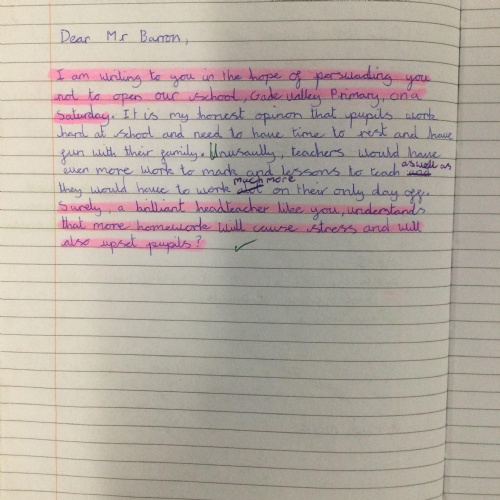 Dear Mr Barron,
I am writing to you in the hope of perswading you
not to open our school, Gade Valley Primary, on a
Saturday. It is my honest opinon that pupils work
hard at school and need to have time to rest and have
fun with their family. Unusaully, teachers would have
even more work to mark and lessons to teach as well as
they would have to work much more on their only day off.
Surely, a brilliant headteacher like you, understands
that more homework will cause stress and will
also upset pupils?